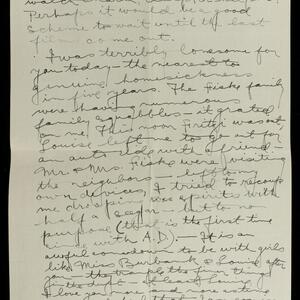 Perhaps it would be a good
scheme to wait until the last
film come out.
I was terribly lonesome for
you today - the nearest to
genuine homesickness
in five years. The Fisks family
were having numerous
family squabbles - it grated
on me. This noon Fritzi was out,
Louise left me to go out for
an auto ride with a friend -
Mr. & Mrs. Fiske were visiting
the neighbors - left to my
own devices, I tried to recoup
my drooping spirits with
half a segar - but to no
purpose (that is the first time
time with A.D.). It is an
awful comedown to be with girls
like Miss Burbank & Louise after
you - they
I love you more and